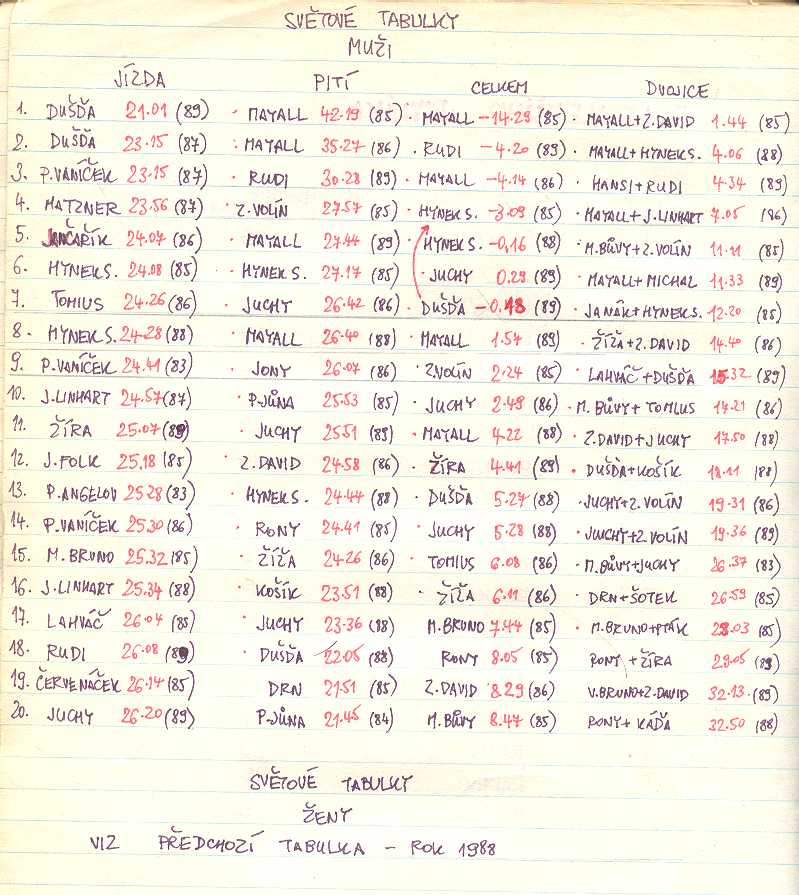 SVĚTOVÉ TABULKY
MUŽI
JÍZDA PITÍ CELKEM DVOJICE
1. DUŠĎA 21.01 (89) · MAYALL 42.19 (85) · MAYALL -14.29 (85) · MAYALL+Z.DAVID 1.44 (85)
2. DUŠĎA 23.15 (87) · MAYALL 35.27 (86) · RUDI -4.20 (89) · MAYALL+HYNEK S. 4.06 (88)
3. P.VANÍČEK 23.15 (87) · RUDI 30.28 (89) · MAYALL -4.14 (86) · HANSI+RUDI 4.34 (89)
4. MATZNER 23.56 (87) · Z.VOLÍN 27.57 (85) · HYNEK S. -3.09 (85) · MAYALL+J.LINHART 7.05 (86)
5. JANČAŘÍK 24.07 (86) · MAYALL 27.44 (89) · HYNEK S. -0,16 (88) · M.BŮVY+Z.VOLÍN 11.11 (85)
6. HYNEK S. 24.08 (85) · HYNEK S. 27.17 (85) · JUCHY 0.29 (89) · MAYALL+MICHAL 11.33 (89)
7. TOMIUS 24.26 (86) · JUCHY 26.42 (86) · DUŠĎA -0.18 (89) · JANÁK+HYNEK S. 12.20 (85)
8. HYNEK S. 24.28 (88) · MAYALL 26.40 (88) · MAYALL 1.57 (89) · ŽÍŽA+Z.DAVID 14.40 (86)
9. P.VANÍČEK 24.41 (83) · JONY 26.07 (86) · Z.VOLÍN 2.24 (85) · LAHVÁČ+DUŠĎA 15.32 (89)
10. J.LINHART 24.57 (87) · P.JŮNA 25.53 (85) · JUCHY 2.49 (86) · M.BŮVY+TOMIUS 17.21 (86)
11. ŽÍRA 25.07 (89) · JUCHY 25.51 (89) · MAYALL 4.22 (88) · Z.DAVID+JUCHY 17.50 (88)
12. J.FOLK 25,18 (85) · Z.DAVID 24.58 (86) · ŽÍRA 4.41 (89) · DUŠĎA+KOŠÍK 18.11 (88)
13. P.ANGELOV 25.28 (83) · HYNEK S. 24.44 (88) · DUŠĎA 5.27 (88) · JUCHY+Z.VOLÍN 19.31 (86)
14. P.VANÍČEK 25.30 (86) · RONY 24.41 (85) · JUCHY 5.28 (88) · JUCHY+Z.VOLÍN 19.36 (89)
15. M.BRUNO 25.32 (85) · ŽÍŽA 24.26 (86) · TOMIUS 6.08 (86) · M.BŮVY+JUCHY 26.37 (83)
16. J.LINHART 25.34 (88) · KOŠÍK 23.51 (88) · ŽÍŽA 6.11 (86) · DRN+ŠOTEK 26.59 (85)
17. LAHVÁČ 26.04 (85) · JUCHY 23.36 (88) M.BRUNO 7.44 (85) · M.BRUNO+PTÁK 28.03 (85)
18. RUDI 26.08 (89) · DUŠĎA 22.05 (88) RONY 8.05 (85) RONY+ŽÍRA 29.05 (89)
19. ČERVENÁČEK 26.14 (85) DRN 21.51 (85) Z.DAVID 8.29 (86) V.BRUNO+Z.DAVID 32.13 (89)
20. JUCHY 26.20 (89) P.JŮNA 21.45 (84) M.BŮVY 8.47 (85) RONY+KÁĎA 32.50 (88)
SVĚTOVÉ TABULKY
ŽENY
VIZ PŘEDCHOZÍ TABULKA - ROK 1988